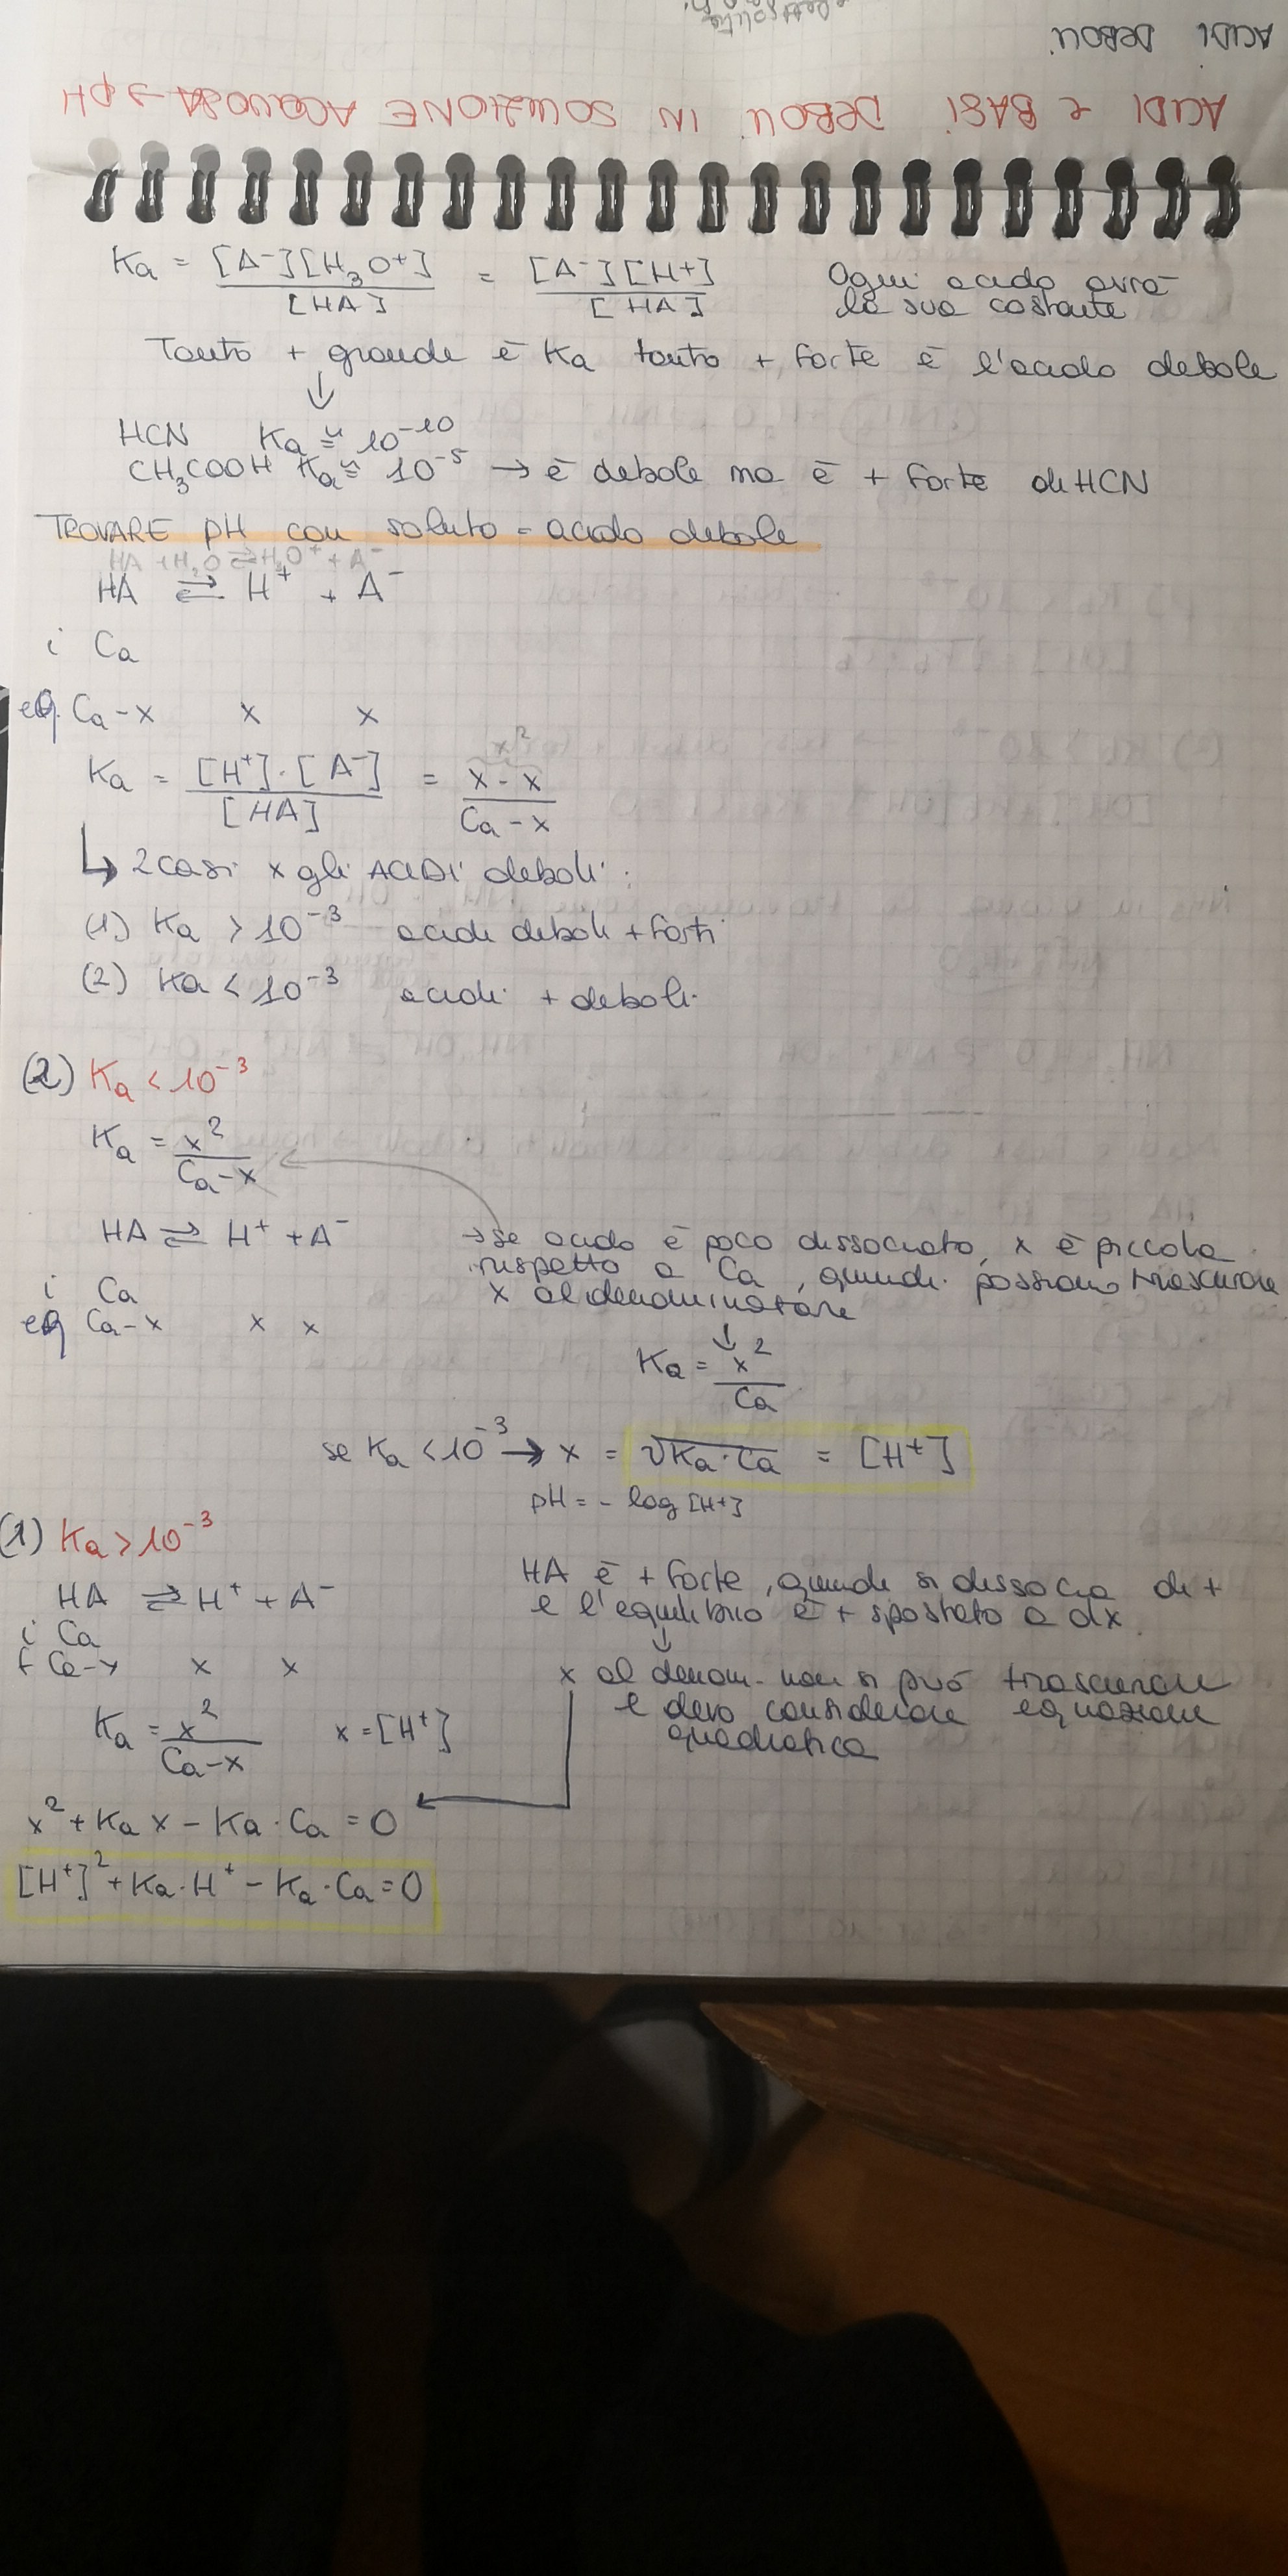 ACIDI DEBOLI
ACIDI e BASI DEBOLI IN SOLUZIONE ACQUOSA → pH
Ka = [A⁻][H₃O⁺] / [HA] = [A⁻][H+] / [HA] Ogni acido avrà
la sua costante
Tanto + grande è Ka tanto + forte è l'acido debole
↓
HCN Ka ≅ 10⁻¹⁰
CH₃COOH Ka ≅ 10⁻⁵ → è debole ma è + forte di HCN
TROVARE pH con soluto = acido debole
HA + H₂O ⇌ H₃O⁺ + A⁻
HA ⇌ H⁺ + A⁻
i Ca
eq. Ca-x x x
Ka = [H⁺]·[A⁻] / [HA] = x·x / Ca-x x²
↳ 2 casi x gli ACIDI deboli:
(1) Ka > 10⁻³ acidi deboli + forti
(2) Ka < 10⁻³ acidi + deboli
(2) Ka < 10⁻³
Ka = x² / Ca-x
HA ⇌ H⁺ + A⁻ → se acido è poco dissociato, x è piccola
rispetto a Ca, quindi possiamo trascurare
i Ca x al denominatore
eq Ca-x x x
↓
Ka = x² / Ca
se Ka < 10⁻³ → x = √Ka·Ca = [H⁺]
pH = - log [H+]
(1) Ka > 10⁻³
HA ⇌ H⁺ + A⁻ HA è + forte, quindi si dissocia di +
i Ca e l'equilibrio è + spostato a dx.
↓
f Ca-x x x x al denom. non si può trascurare
e devo considerare equazione
quadratica
Ka = x² / Ca-x x = [H⁺]
x² + Ka x - Ka·Ca = 0
[H⁺]² + Ka·H⁺ - Ka·Ca = 0